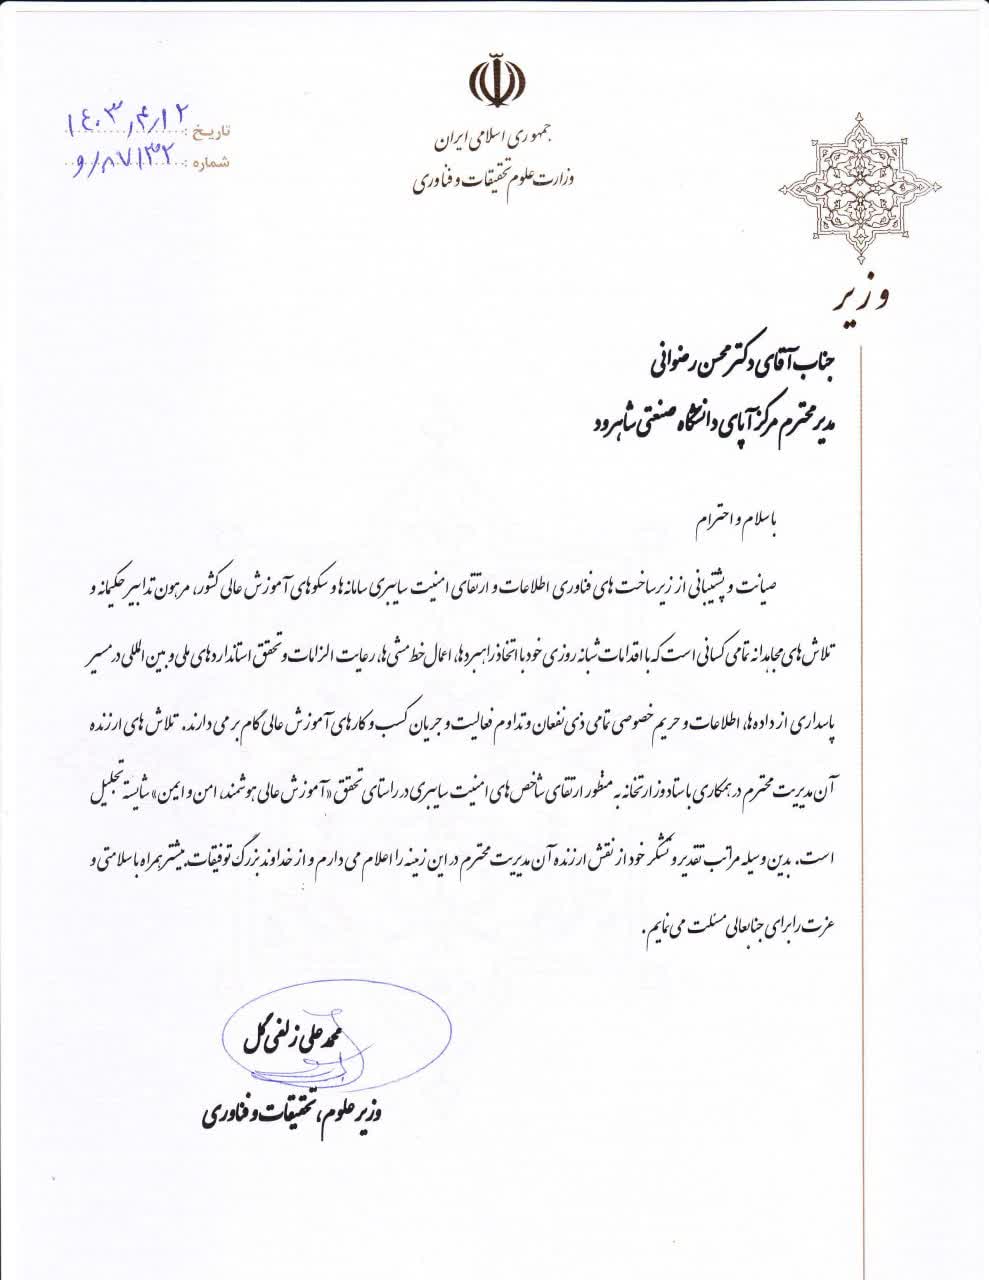 جمهوری اسلامی ایران
وزارت علوم تحقیقات و فناوری
تاریخ: ۱۴۰۳/۴/۱۲
شماره: و/۸۷۱۳۲
وزیر
جناب آقای دکتر محسن رضوانی
مدیر محترم مرکز آپای دانشگاه صنعتی شاهرود
با سلام و احترام
صیانت و پشتیبانی از زیرساخت های فناوری اطلاعات و ارتقای امنیت سایبری سامانه ها و سکوهای آموزش عالی کشور، مرهون تدابیر حکیمانه و
تلاش های مجاهدانه تمامی کسانی است که با اقدامات شبانه روزی خود با اتخاذ راهبردها، اعمال خط مشی ها، رعایت الزامات و تحقق استانداردهای ملی و بین المللی در مسیر
پاسداری از داده ها، اطلاعات و حریم خصوصی تمامی ذی نفعان و تداوم فعالیت و جریان کسب و کارهای آموزش عالی گام بر می دارند. تلاش های ارزنده
آن مدیریت محترم در همکاری با ستاد وزارتخانه به منظور ارتقای شاخص های امنیت سایبری در راستای تحقق «آموزش عالی هوشمند، امن و ایمن» شایسته تجلیل
است. بدین وسیله مراتب تقدیر و تشکر خود از نقش ارزنده آن مدیریت محترم در این زمینه را اعلام می دارم و از خداوند بزرگ توفیقات بیشتر همراه با سلامتی و
عزت را برای جنابعالی مسئلت می نمایم.
محمد علی زلفی گل
وزیر علوم، تحقیقات و فناوری